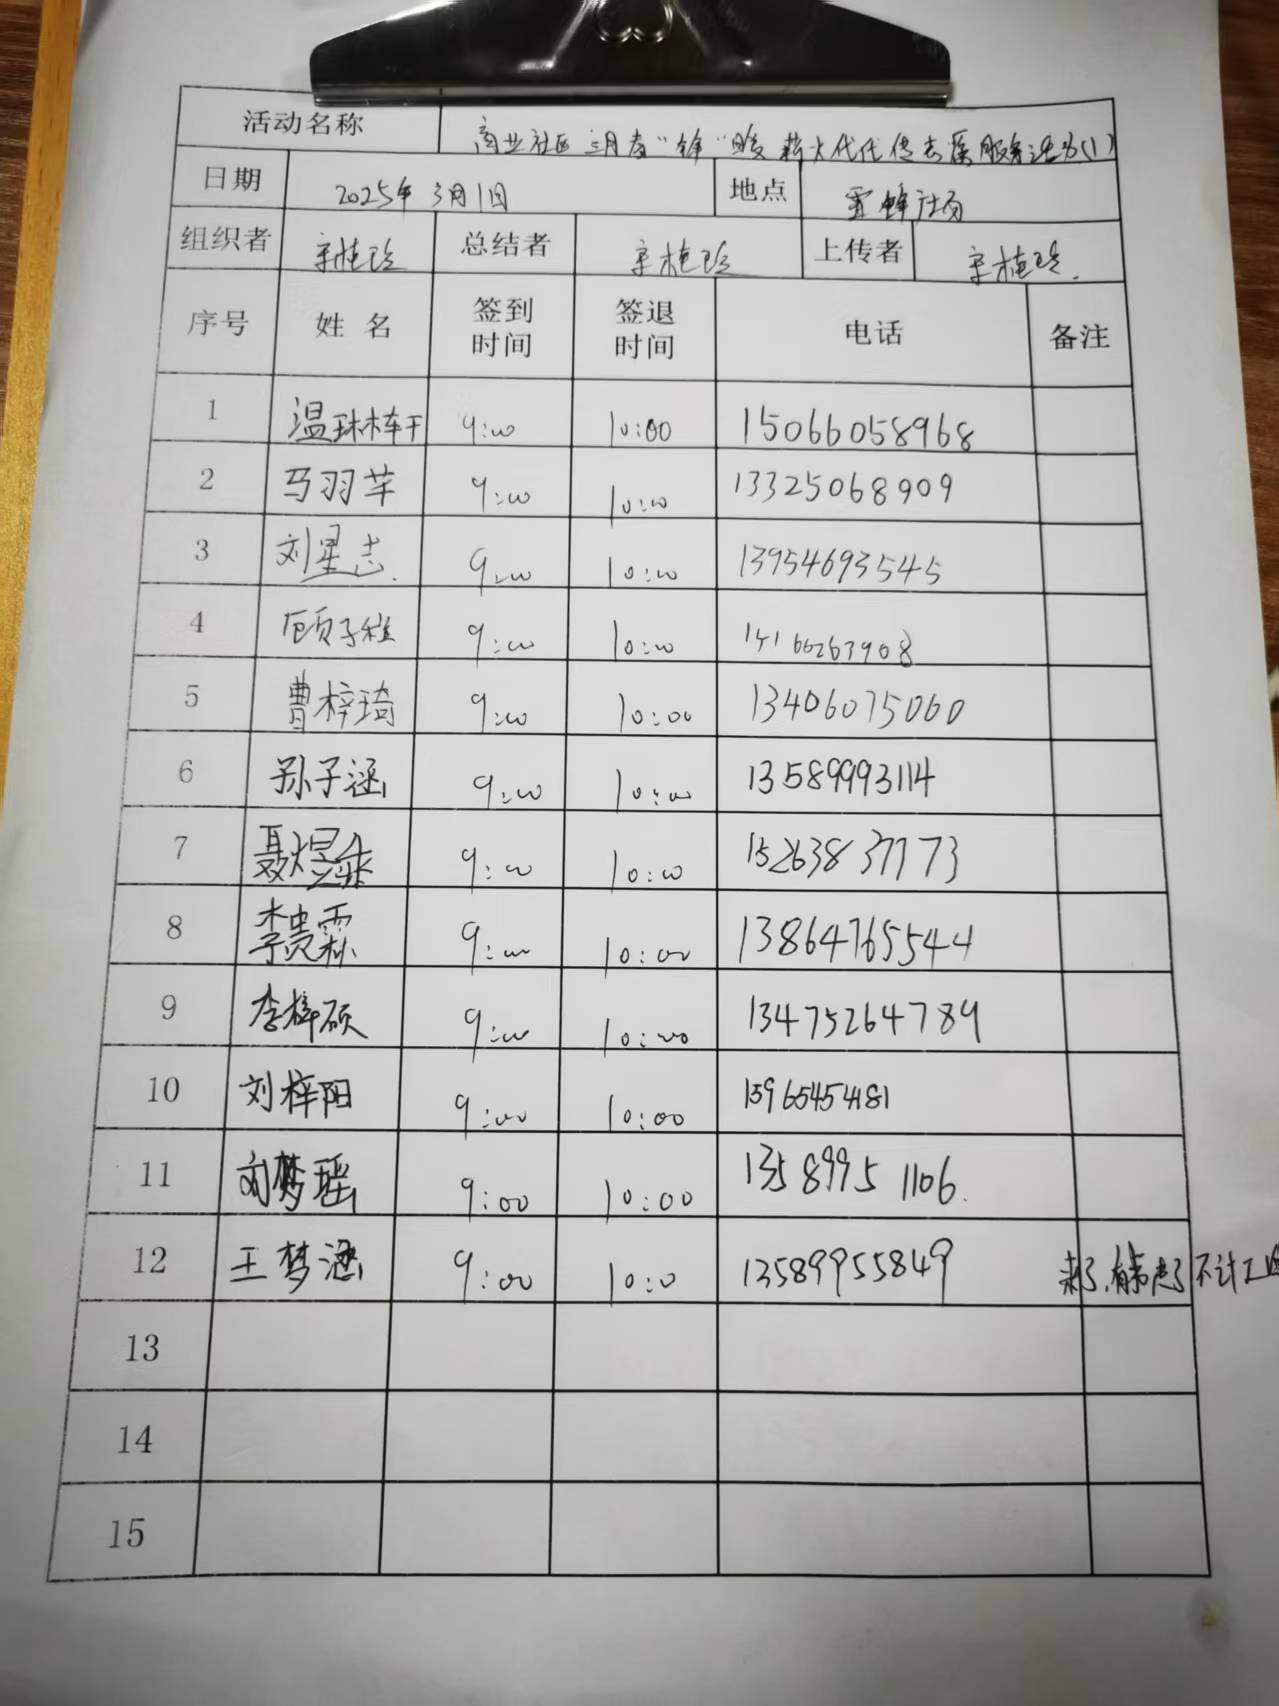 活动名称 商业社区三月春"锋"暖 薪火代代传志愿服务活动(1)
日期 2025年3月1日 地点 雷锋广场
组织者 总结者 上传者
序号 姓名 签到时间 签退时间 电话 备注
1 温琳梓 9:00 10:00 15066058968
2 马羽芊 9:00 10:00 13325068909
3 刘星志 9:00 10:00 13954693545
4 顾子程 9:00 10:00
5 曹梓琦 9:00 10:00 13406075060
6 孙子涵 9:00 10:00 13589993114
7 聂煜朵 9:00 10:00 15263837773
8 李贵霖 9:00 10:00 13864765544
9 李梓硕 9:00 10:00 13475264789
10 刘梓阳 9:00 10:00 13965454181
11 刘梦瑶 9:00 10:00 13589951106.
12 王梦涵 9:00 10:0 13589955849 来了,有事走了不计工时
13
14
15